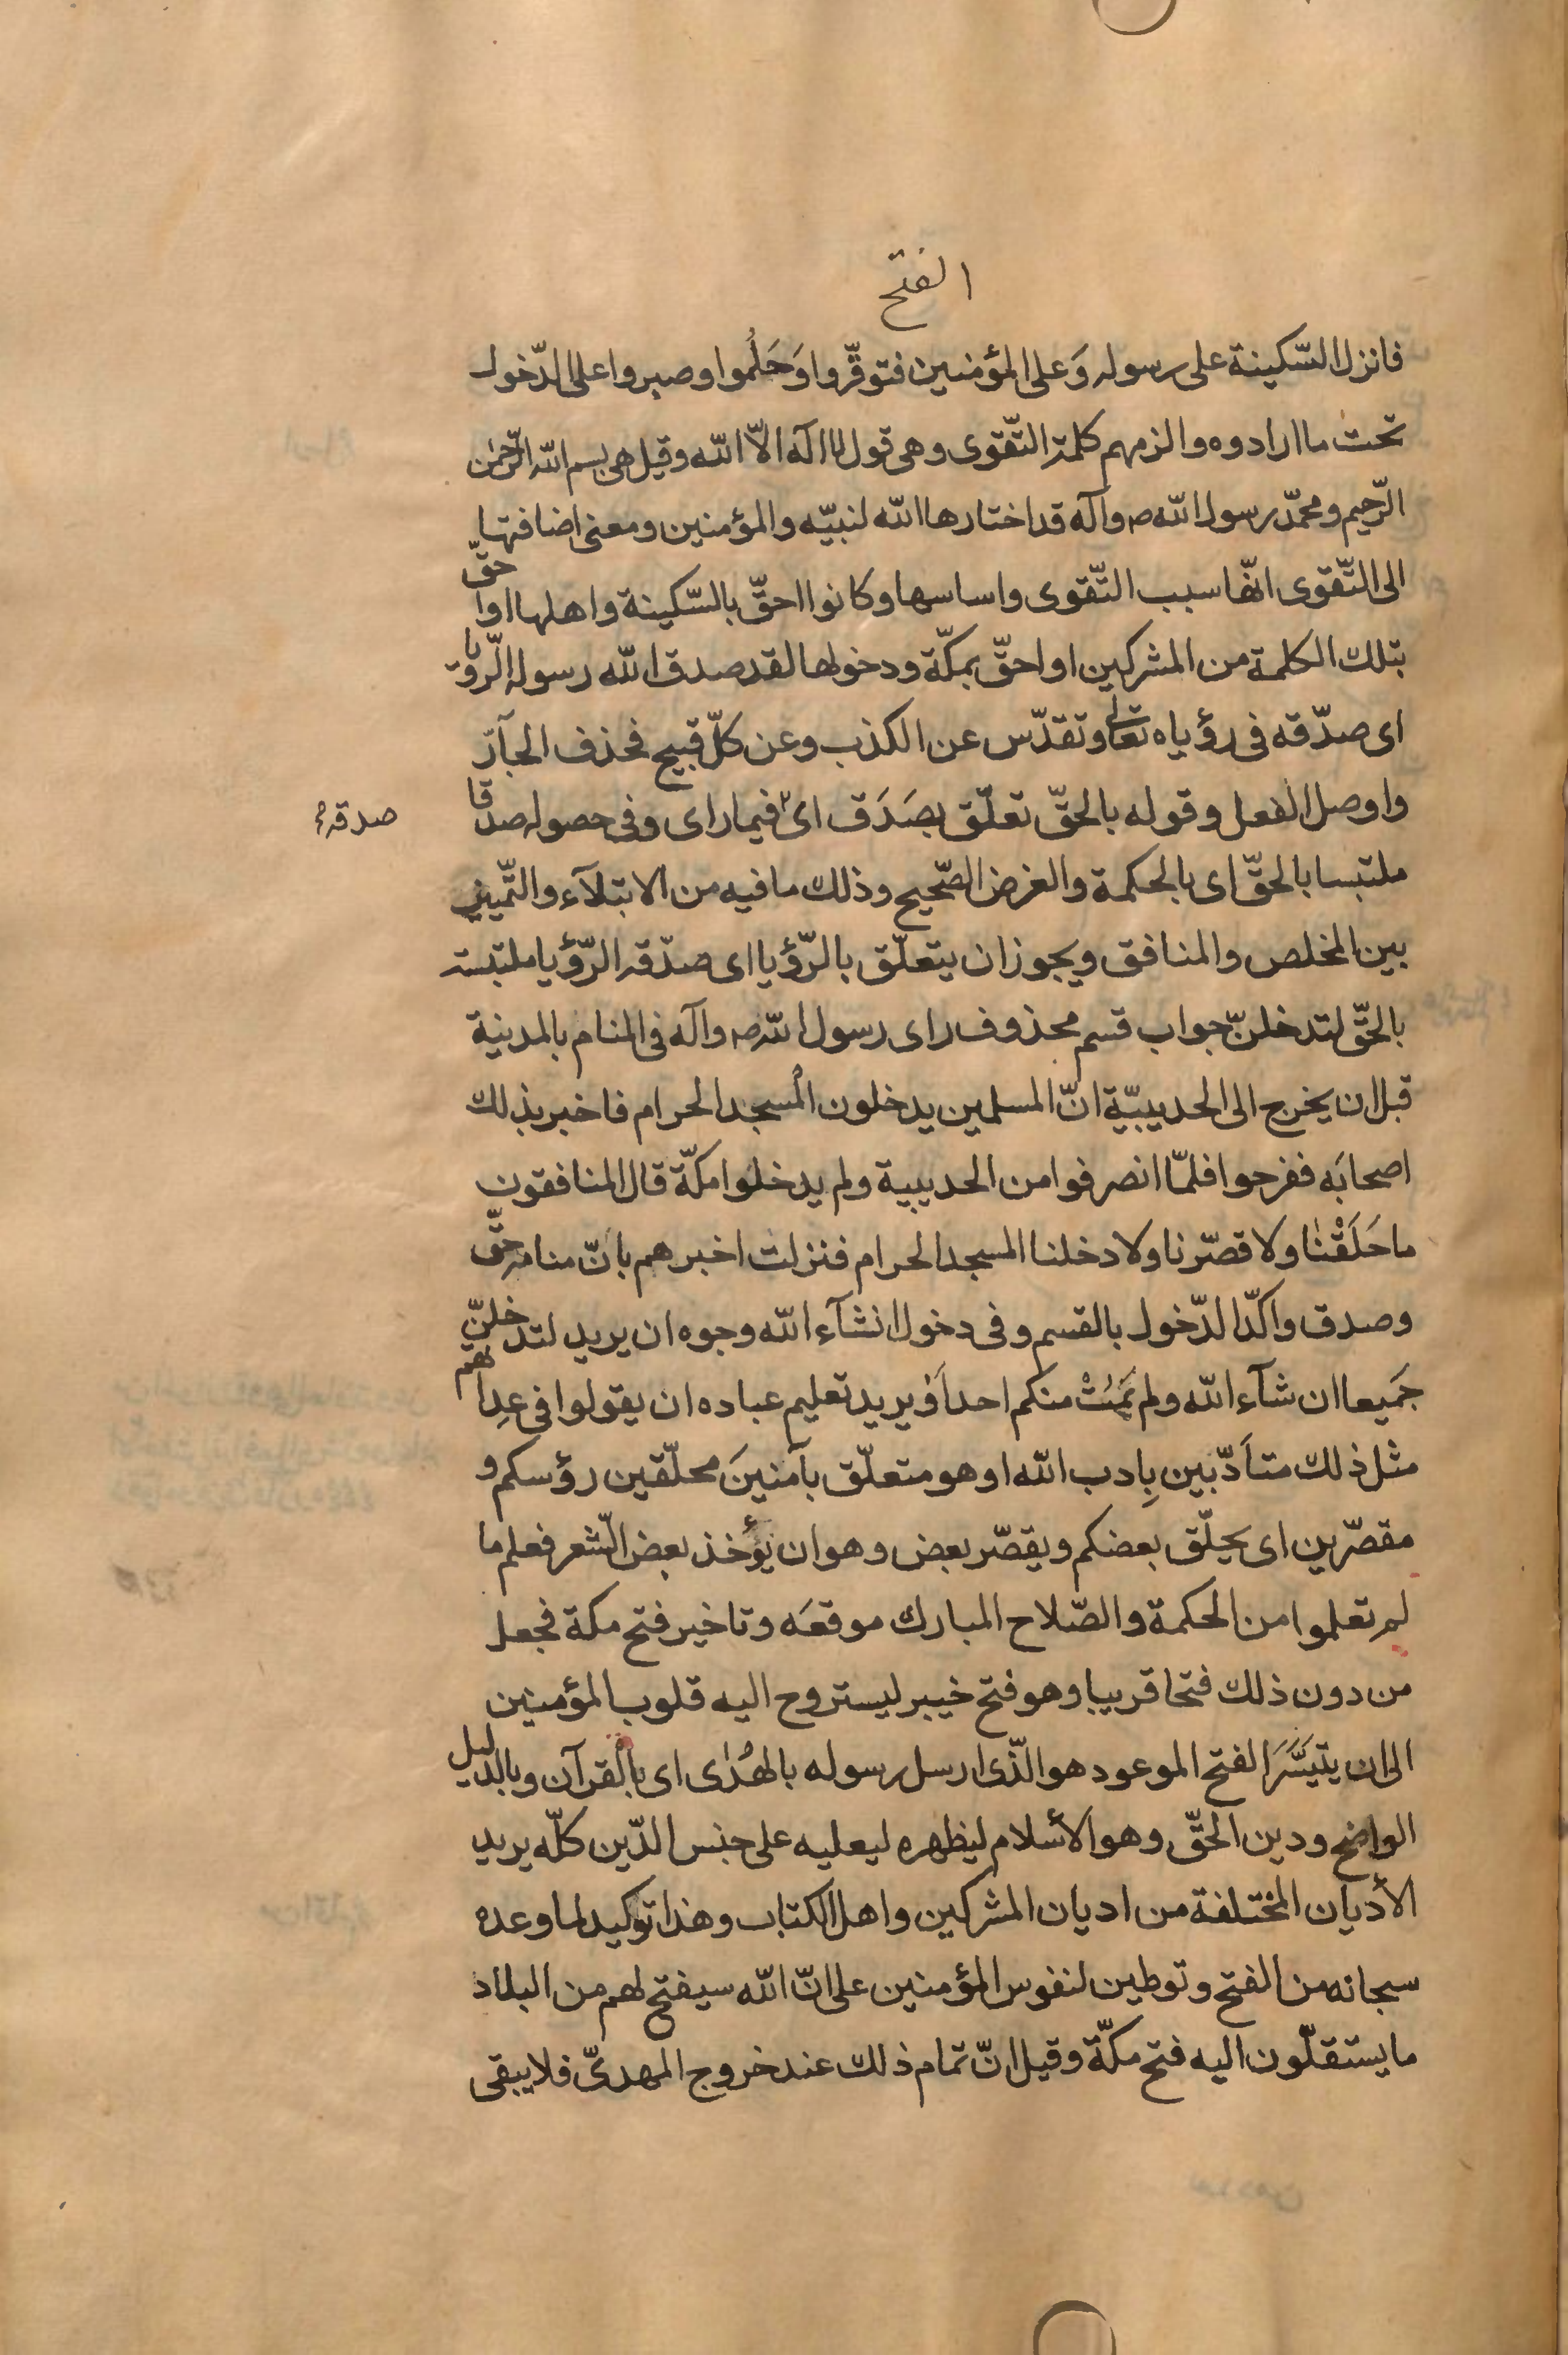 الفتح
فانزل السّكينة على رسوله وَعلى المؤمنين فتوقّروا وَحَلُموا وصبروا على الدّخول
تحت ما ارادوه والزمهم كلمة التّقوى وهى قول لا اله الاّ الله وقيل هى بسم الله الرّحمن
الرّحيم ومحمّد رسول الله ص وآله قد اختارها الله لنبيّه والمؤمنين ومعنى اضافتها
الى التّقوى انّها سبب التّقوى واساسها وكانوا احقّ بالسّكينة واهلها او احقّ
بتلك الكلمة من المشركين او احقّ بمكّة ودخولها لقد صدق الله رسوله الرّؤيا
اى صدّقه فى رؤياه تعالى وتقدّس عن الكذب وعن كلّ قبيح فحذف الجآرّ
واوصل الفعل وقوله بالحقّ تعلّق بصَدَق اى فيما راى وفى حصوله صدقا
صدقه
ملتبسا بالحقّ اى بالحكمة والغرض الصّحيح وذلك ما فيه من الابتلآء والتّمييز
بين المخلص والمنافق ويجوز ان يتعلّق بالرّؤيا اى صدّقه الرّؤيا ملتبسة
بالحقّ لتدخلنّ جواب قسم محذوف راى رسول الله ص وآله فى المنام بالمدينة
قبل ان يخرج الى الحديبيّة انّ المسلمين يدخلون المسجد الحرام فاخبر بذلك
اصحابَه ففرحوا فلمّا انصرفوا من الحديبية ولم يدخلوا مكّة قال المنافقون
ما حَلَقْنٰا ولا قصّرنا ولا دخلنا المسجد الحرام فنزلت اخبرهم بانّ منامه حقّ
وصدق واكّد الدّخول بالقسم وفى دخول انشآء الله وجوه ان يريد لتدخلنّ
جَميعا ان شآء الله ولم يَمُتْ منكم احد اَوْ يريد تعليم عباده ان يقولوا فى عِداتهم
مثل ذلك متاَدّبين بِادب الله او هو متعلّق بآمنينَ محلّقين رؤسكم و
مقصّرين اى يحلّق بعضكم ويقصّر بعض وهو ان يؤخذ بعض الشّعر فعلم ما
لم تعلموا من الحكمة والصّلاح المبارك موقعَه وتاخير فتح مكة فجعل
من دون ذلك فتحا قريبا وهو فتح خيبر ليستروح اليه قلوب المؤمنين
الى ان يتيَسَّرَ الفتح الموعود هو الّذى ارسل رسوله بالهُدٰى اى بالقرآن وبالدّليل
الواضح ودين الحقّ وهو الأسلام ليظهره ليعليه على جنس الدّين كلّه يريد
الأديان المختلفة من اديان المشركين واهل الكتاب وهذا توكيد لما وعده
سبحانه من الفتح وتوطين لنفوس المؤمنين على انّ الله سيفتح لهم من البلاد
ما يستقلّون اليه فتح مكّة وقيل انّ تمام ذلك عند خروج المهدىّ فلا يبقى